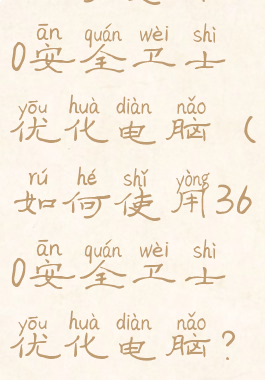 ān quán wèi shì
0安全卫士
yōu huà diàn nǎo
优化电脑（
rú hé shǐ yòng
如何使用36
ān quán wèi shì
0安全卫士
yōu huà diàn nǎo
优化电脑？